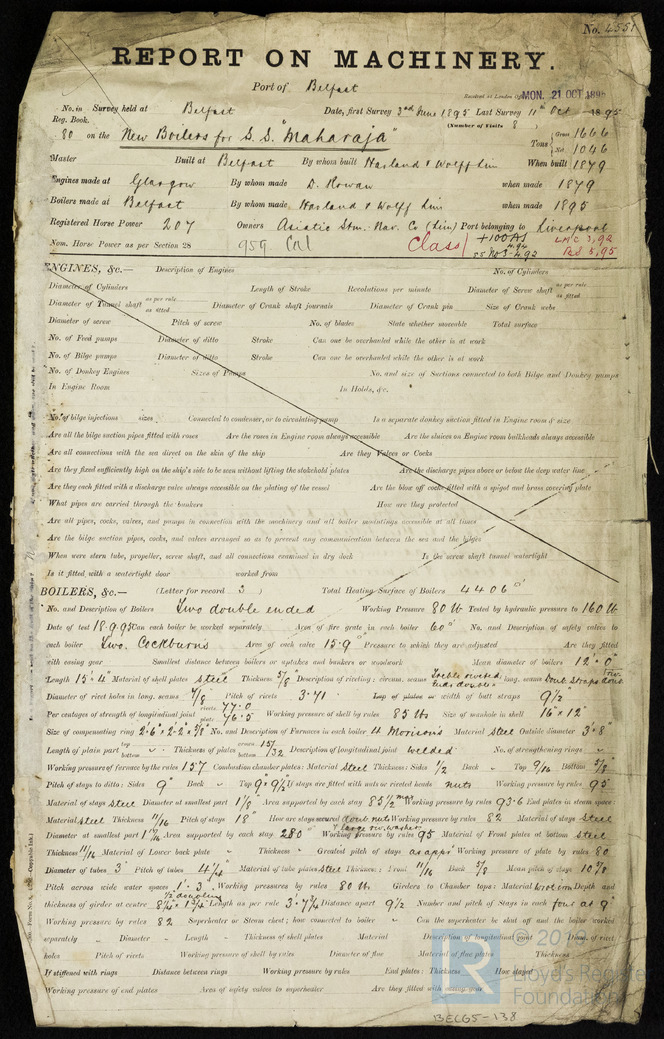 No. 4551
REPORT ON MACHINERY.
Port of Belfast
Received at London Office MON. 21 OCT 1895
No. in Survey held at Belfast Date, first Survey 3rd June 1895 Last Survey 11th Oct 1895
Reg. Book. (Number of Visits 8)
80 on the New Boilers for S.S. "Maharaja" Tons Gross 1666 Net 1046
Master Built at Belfast By whom built Harland & Wolff Lim When built 1879
Engines made at Glasgow By whom made D. Rowan when made 1879
Boilers made at Belfast By whom made Harland & Wolff Lim when made 1895
Registered Horse Power 207 Owners Asiatic Stm. Nav. Co (Lim) Port belonging to Liverpool
Nom. Horse Power as per Section 28 Class +100A1
ENGINES, &c.— Description of Engines No. of Cylinders
Diameter of Cylinders Length of Stroke Revolutions per minute Diameter of Screw shaft as per rule as fitted
Diameter of Tunnel shaft as per rule as fitted Diameter of Crank shaft journals Diameter of Crank pin Size of Crank webs
Diameter of screw Pitch of screw No. of blades State whether moveable Total surface
No. of Feed pumps Diameter of ditto Stroke Can one be overhauled while the other is at work
No. of Bilge pumps Diameter of ditto Stroke Can one be overhauled while the other is at work
No. of Donkey Engines Sizes of Pumps No. and size of Suctions connected to both Bilge and Donkey pumps
In Engine Room In Holds, &c.
No. of bilge injections sizes Connected to condenser, or to circulating pump Is a separate donkey suction fitted in Engine room & size
Are all the bilge suction pipes fitted with roses Are the roses in Engine room always accessible Are the sluices on Engine room bulkheads always accessible
Are all connections with the sea direct on the skin of the ship Are they Valves or Cocks
Are they fixed sufficiently high on the ship's side to be seen without lifting the stokehold plates Are the discharge pipes above or below the deep water line
Are they each fitted with a discharge valve always accessible on the plating of the vessel Are the blow off cocks fitted with a spigot and brass covering plate
What pipes are carried through the bunkers How are they protected
Are all pipes, cocks, valves, and pumps in connection with the machinery and all boiler mountings accessible at all times
Are the bilge suction pipes, cocks, and valves arranged so as to prevent any communication between the sea and the bilges
When were stern tube, propeller, screw shaft, and all connections examined in dry dock Is the screw shaft tunnel watertight
Is it fitted with a watertight door worked from
BOILERS, &c.— (Letter for record 3) Total Heating Surface of Boilers 4406□'
No. and Description of Boilers Two double ended Working Pressure 80 lb Tested by hydraulic pressure to 160 lb
Date of test 18.9.95 Can each boiler be worked separately Area of fire grate in each boiler 60□' No. and Description of safety valves to
each boiler Two. Cockburns Area of each valve 15.9" Pressure to which they are adjusted Are they fitted
with easing gear Smallest distance between boilers or uptakes and bunkers or woodwork Mean diameter of boilers 12'.0"
Length 15'.4" Material of shell plates steel Thickness 5/8" Description of riveting: circum. seams Treble riveted ends double long. seams Doub. Straps
Diameter of rivet holes in long. seams 7/8 Pitch of rivets 3.71 Lap of plates or width of butt straps 9½"
Per centages of strength of longitudinal joint rivets 77.0 plate 76.5 Working pressure of shell by rules 85 lbs Size of manhole in shell 16" x 12"
Size of compensating ring 2'.6" x 2'.2" x 5/8" No. and Description of Furnaces in each boiler 4 Morison's Material steel Outside diameter 3'.8"
Length of plain part top bottom Thickness of plates crown bottom 15/32 Description of longitudinal joint welded No. of strengthening rings
Working pressure of furnace by the rules 157 Combustion chamber plates: Material steel Thickness: Sides ½ Back " Top 9/16 Bottom 5/8"
Pitch of stays to ditto: Sides 9" Back " Top 9" x 9½" If stays are fitted with nuts or riveted heads nuts Working pressure by rules 95
Material of stays steel Diameter at smallest part 1⅛ Area supported by each stay 85½ Working pressure by rules 93.6 End plates in steam space:
Material steel Thickness 11/16 Pitch of stays 18" How are stays secured doub nuts & large riv. washer Working pressure by rules 82 Material of stays steel
Diameter at smallest part Area supported by each stay 280 Working pressure by rules 95 Material of Front plates at bottom steel
Thickness 11/16 Material of Lower back plate " Thickness " Greatest pitch of stays as app'd Working pressure of plate by rules 80
Diameter of tubes 3" Pitch of tubes 4¼" Material of tube plates steel Thickness: Front 11/16 Back 5/8 Mean pitch of stays 10⅝
Pitch across wide water spaces 1'.3 ½ doubling Working pressures by rules 80 lb Girders to Chamber tops: Material wrot iron Depth and
thickness of girder at centre 8¼ x 1¾ Length as per rule Distance apart 9½ Number and pitch of Stays in each four at 9"
Working pressure by rules 82 Superheater or Steam chest; how connected to boiler Can the superheater be shut off and the boiler worked
separately Diameter Length Thickness of shell plates Material Description of longitudinal joint Diam. of rivet
holes Pitch of rivets Working pressure of shell by rules Diameter of flue Material of flue plates Thickness
If stiffened with rings Distance between rings Working pressure by rules End plates: Thickness How stayed
Working pressure of end plates Area of safety valves to superheater Are they fitted with easing gear
© 2019
Lloyd's Register
Foundation
BEL65-138